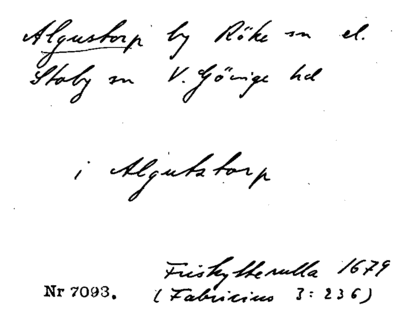 Algustorp by Röke sn el.
Stoby sn V. Göinge hd
i Algutstorp
Friskytterulla 1679
Nr 7093. (Fabricius 3:236)